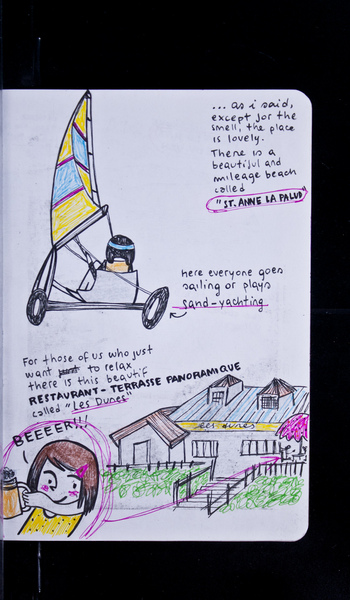 ... as i said,
except for the
smell, the place
is lovely.
There is a
beautiful and
mileage beach
called
"ST. ANNE LA PALUD"
here everyone goes
sailing or plays
sand-yachting
For those of us who just
want just to relax
there is this beautif
RESTAURANT - TERRASSE PANORAMIQUE
called "Les Dunes"
BEEEER!!!
les dunes